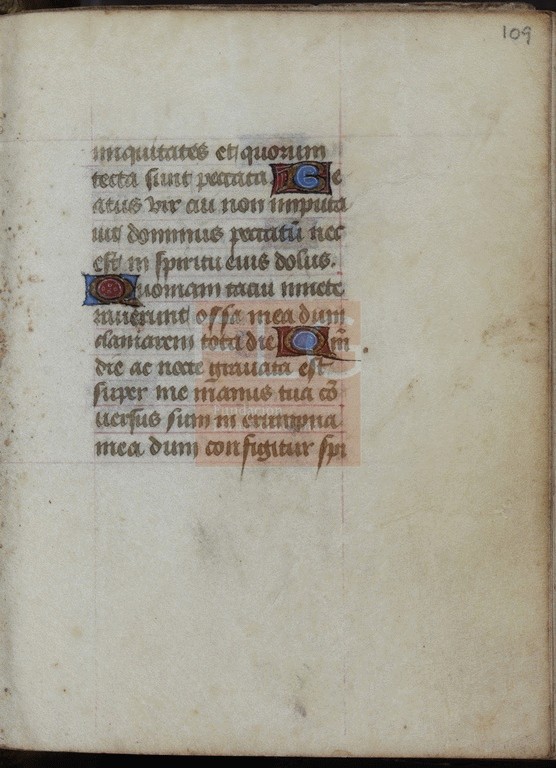 109
iniquitates et quorum
tecta sunt peccata Be
atus vir cui non imputa
uit dominus peccatū nec
est in spiritu eius dolus.
Quoniam tacui inuete
rauerunt ossa mea dum
clamarem tota die Qm̄
die ac nocte grauata est
super me manus tua cō
uersus sum in erumpna
mea dum configitur spi
Fundación